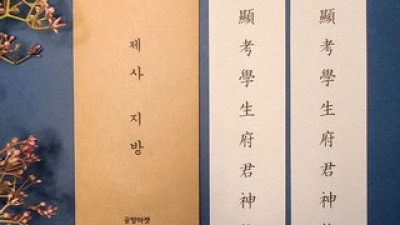 제사 지방
공방마켓
顯考學生府君神
顯考學生府君神